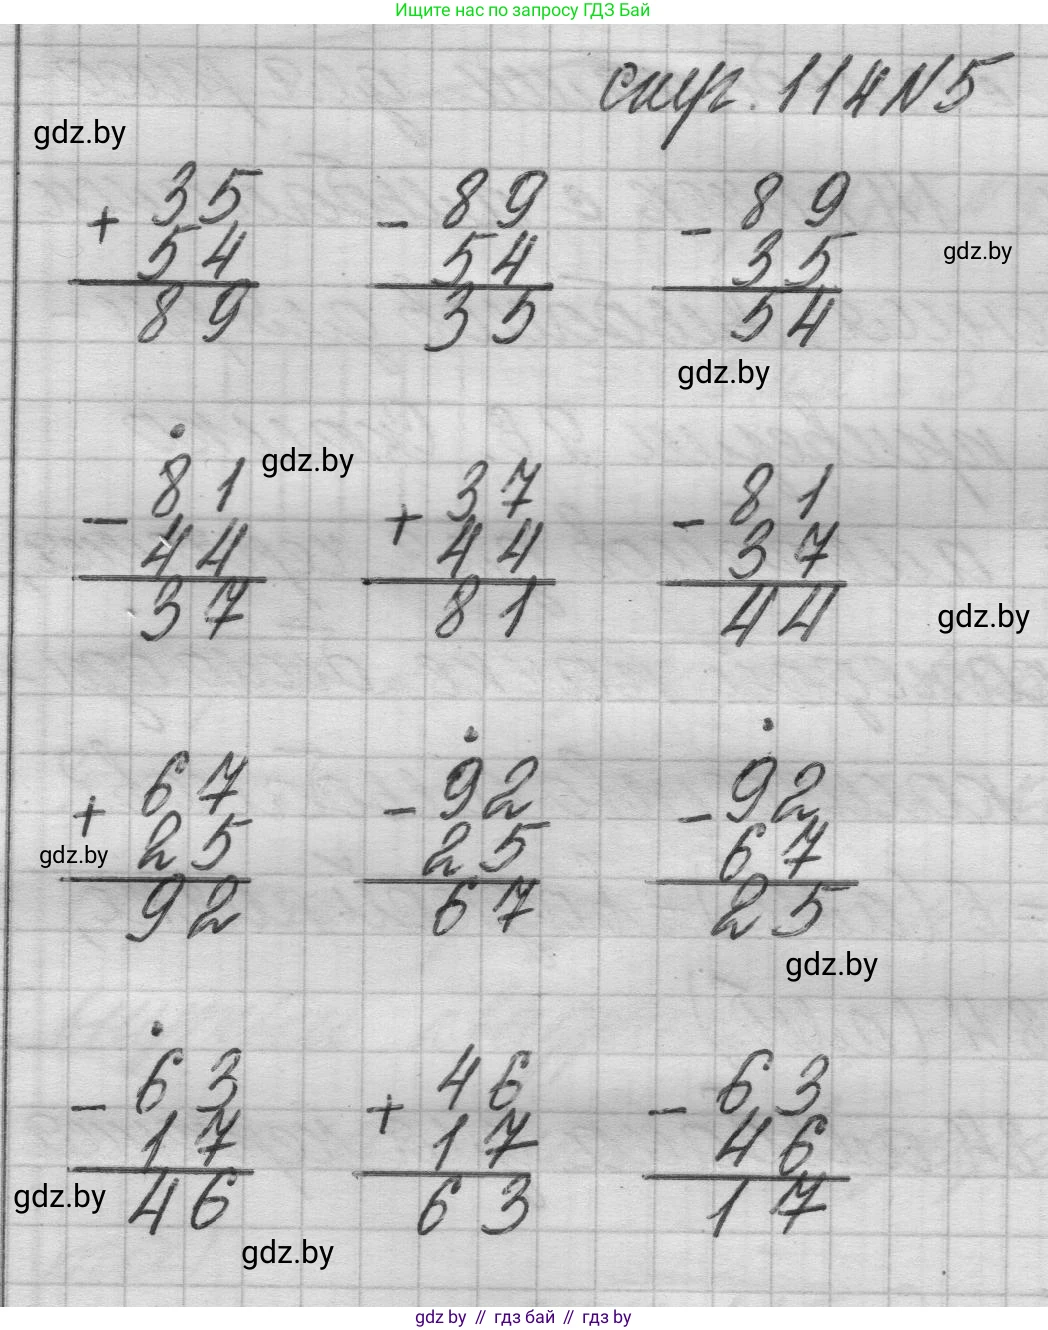 Ищите нас по запросу ГДЗ Бай
стр. 114 N5
gdz.by
+ 35 - 89 - 89
54 54 35
gdz.by
89 35 54
gdz.by
gdz.by
- 81 + 37 - 81
44 44 37
37 81 44
gdz.by
+ 67 - 92 - 92
25 25 67
gdz.by
92 67 25
gdz.by
- 63 + 46 - 63
17 17 46
46 63 17
gdz.by
gdz.by
gdz by // гдз бай // гдз by